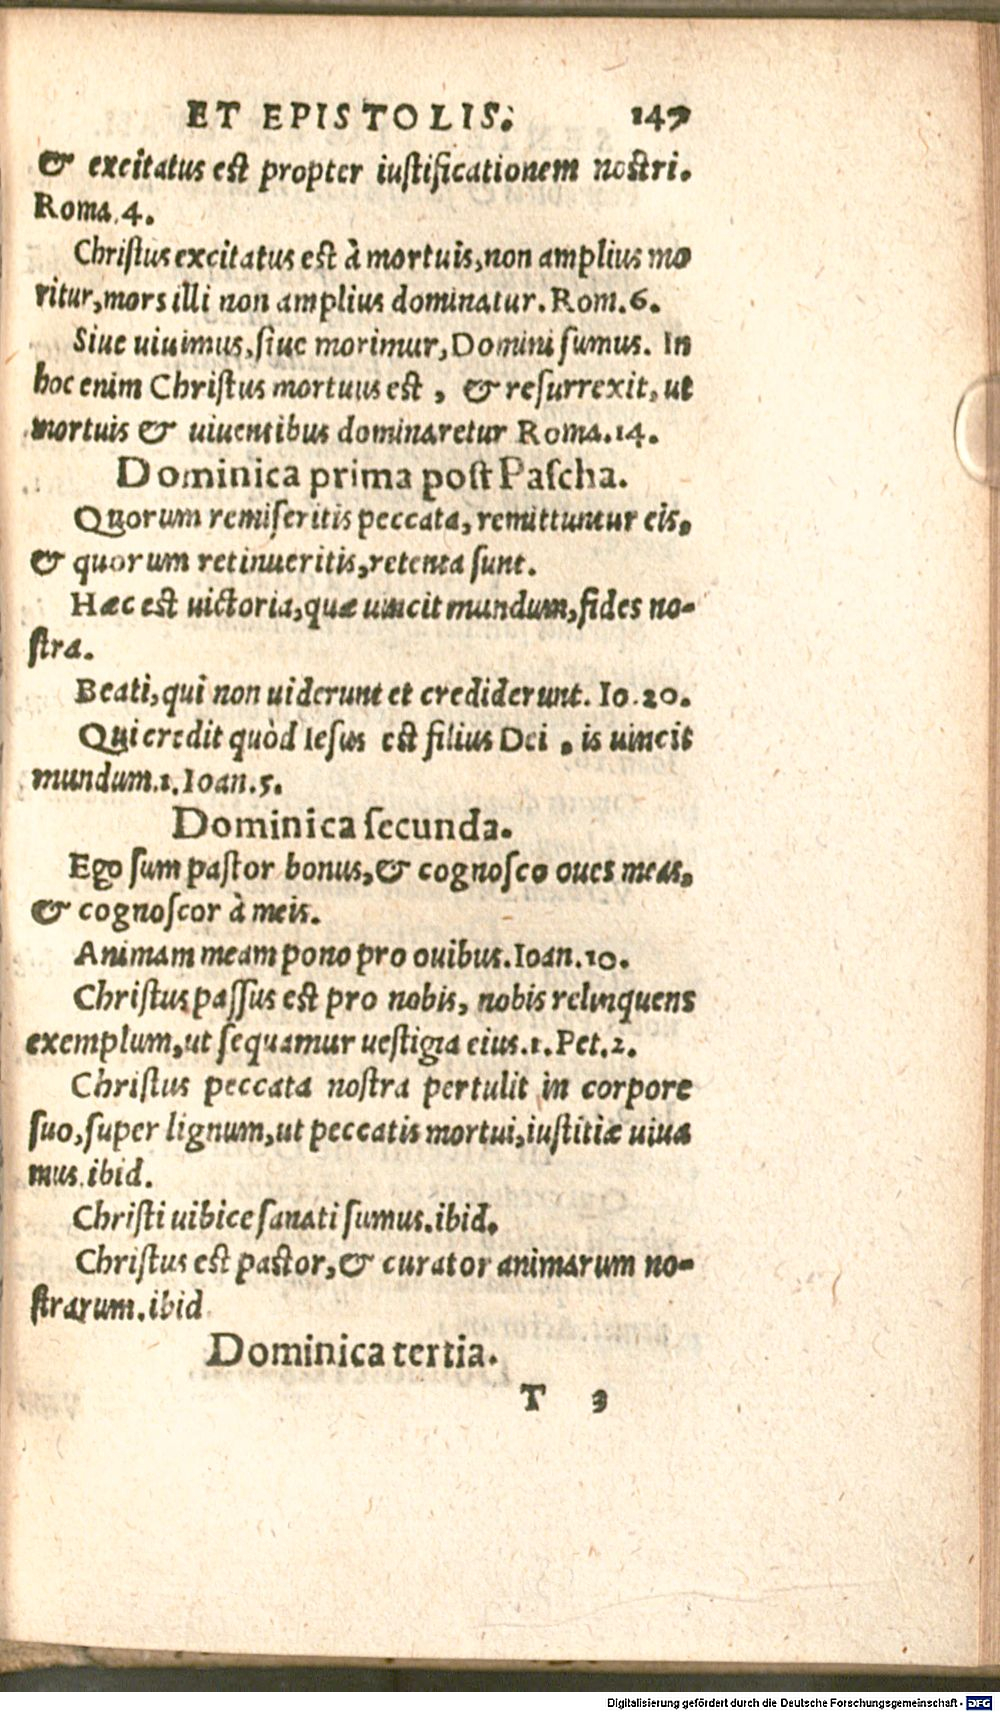 ET EPISTOLIS. 147
& excitatus est propter iustificationem nostri.
Roma. 4.
Christus excitatus est à mortuis, non amplius mo
ritur, mors illi non amplius dominatur. Rom. 6.
Siue uiuimus, siue morimur, Domini sumus. In
hoc enim Christus mortuus est, & resurrexit, ut
mortuis & uiuentibus dominaretur Roma. 14.
Dominica prima post Pascha.
Quorum remiseritis peccata, remittuntur eis,
& quorum retinueritis, retenta sunt.
Hæc est uictoria, quæ uincit mundum, fides no-
stra.
Beati, qui non uiderunt et crediderunt. Io. 20.
Qui credit quòd Iesus est filius Dei, is uincit
mundum. 1. Ioan. 5.
Dominica secunda.
Ego sum pastor bonus, & cognosco oues meas,
& cognoscor à meis.
Animam meam pono pro ouibus. Ioan. 10.
Christus passus est pro nobis, nobis relinquens
exemplum, ut sequamur uestigia eius. 1. Pet. 2.
Christus peccata nostra pertulit in corpore
suo, super lignum, ut peccatis mortui, iustitiæ uiua
mus. ibid.
Christi uibice sanati sumus. ibid.
Christus est pastor, & curator animarum no-
strarum. ibid
Dominica tertia.
T 3
Digitalisierung gefördert durch die Deutsche Forschungsgemeinschaft - DFG